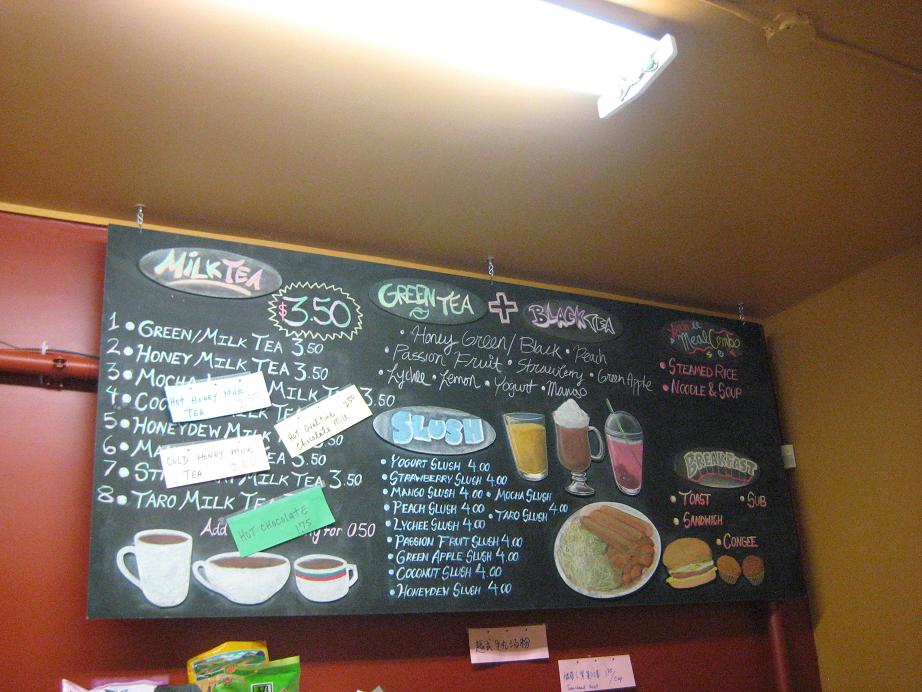 MILK TEA
$3.50
1 • GREEN/MILK TEA 3.50
2 • HONEY MILK TEA 3.50
3 • MOCHA
4 • 3.50
5 • HONEYDEW MILK
6 •
7 • 3.50
8 • TARO MILK TEA
Add for 0.50
HOT HONEY MILK
TEA
HOT OVALTINE
Chocolate Milk
COLD HONEY MILK
TEA
HOT CHOCOLATE
1.75
GREEN TEA + BLACK TEA
• Honey Green/Black • Peach
• Passion Fruit • Strawberry • Green Apple
• Lychee • Lemon • Yogurt • Mango
SLUSH
• YOGURT SLUSH 4.00
• STRAWBERRY SLUSH 4.00
• MANGO SLUSH 4.00 • MOCHA SLUSH
• PEACH SLUSH 4.00 • TARO SLUSH 4.00
• LYCHEE SLUSH 4.00
• PASSION FRUIT SLUSH 4.00
• GREEN APPLE SLUSH 4.00
• COCONUT SLUSH 4.00
• HONEYDEW SLUSH 4.00
Meal Combo
• STEAMED RICE
• NOODLE & SOUP
BREAKFAST
• TOAST • SUB
• SANDWICH
• CONGEE